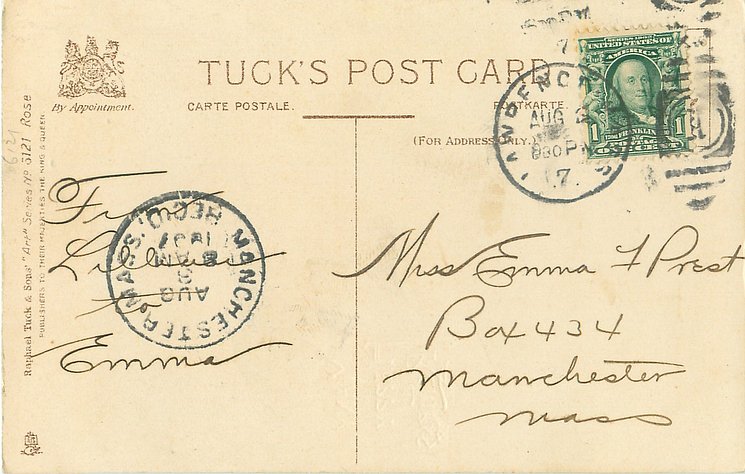 TUCK'S POST CARD
By Appointment.
CARTE POSTALE.
POSTKARTE.
(FOR ADDRESS ONLY.)
SERIES 1902
UNITED STATES OF
AMERICA
FRANKLIN
1 1
POSTAGE
ONE CENT
LAWRENCE
AUG
830 PM
'7.
7
MANCHESTER, MASS. REC'D.
AUG
8
AM
1907
From
Lillian
to
Emma
Miss Emma F Prest
Box 434
Manchester
Mass
Raphael Tuck & Sons' "Art" Series No 6121 Rose
PUBLISHERS TO THEIR MAJESTIES THE KING & QUEEN.
6121